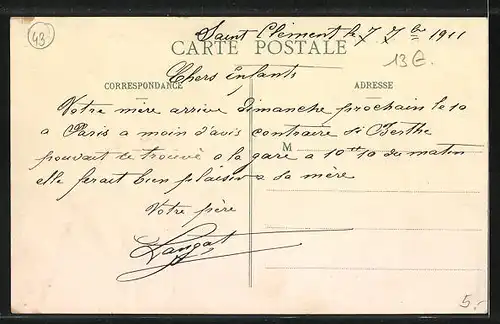 43
Saint Clément le 7 7bre 1911
CARTE POSTALE
13 E.
Chers Enfants
CORRESPONDANCE
ADRESSE
Votre mère arrive Dimanche prochain le 10
a Paris a moin d'avis contraire si Berthe
M
pouvait ce trouvé a la gare a 10 H 10 du matin
elle ferait bien plaisir a sa mère
Votre père
5.-